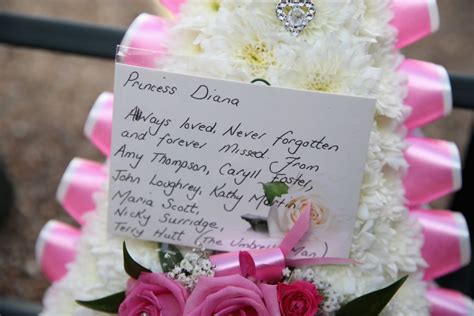 Princess Diana
Always loved, Never forgotten
and forever missed. From
Amy Thompson, Caryll Foster,
John Loughrey, Kathy Martin,
Maria Scott,
Nicky Surridge,
Terry Hutt (The Umbrella Man)